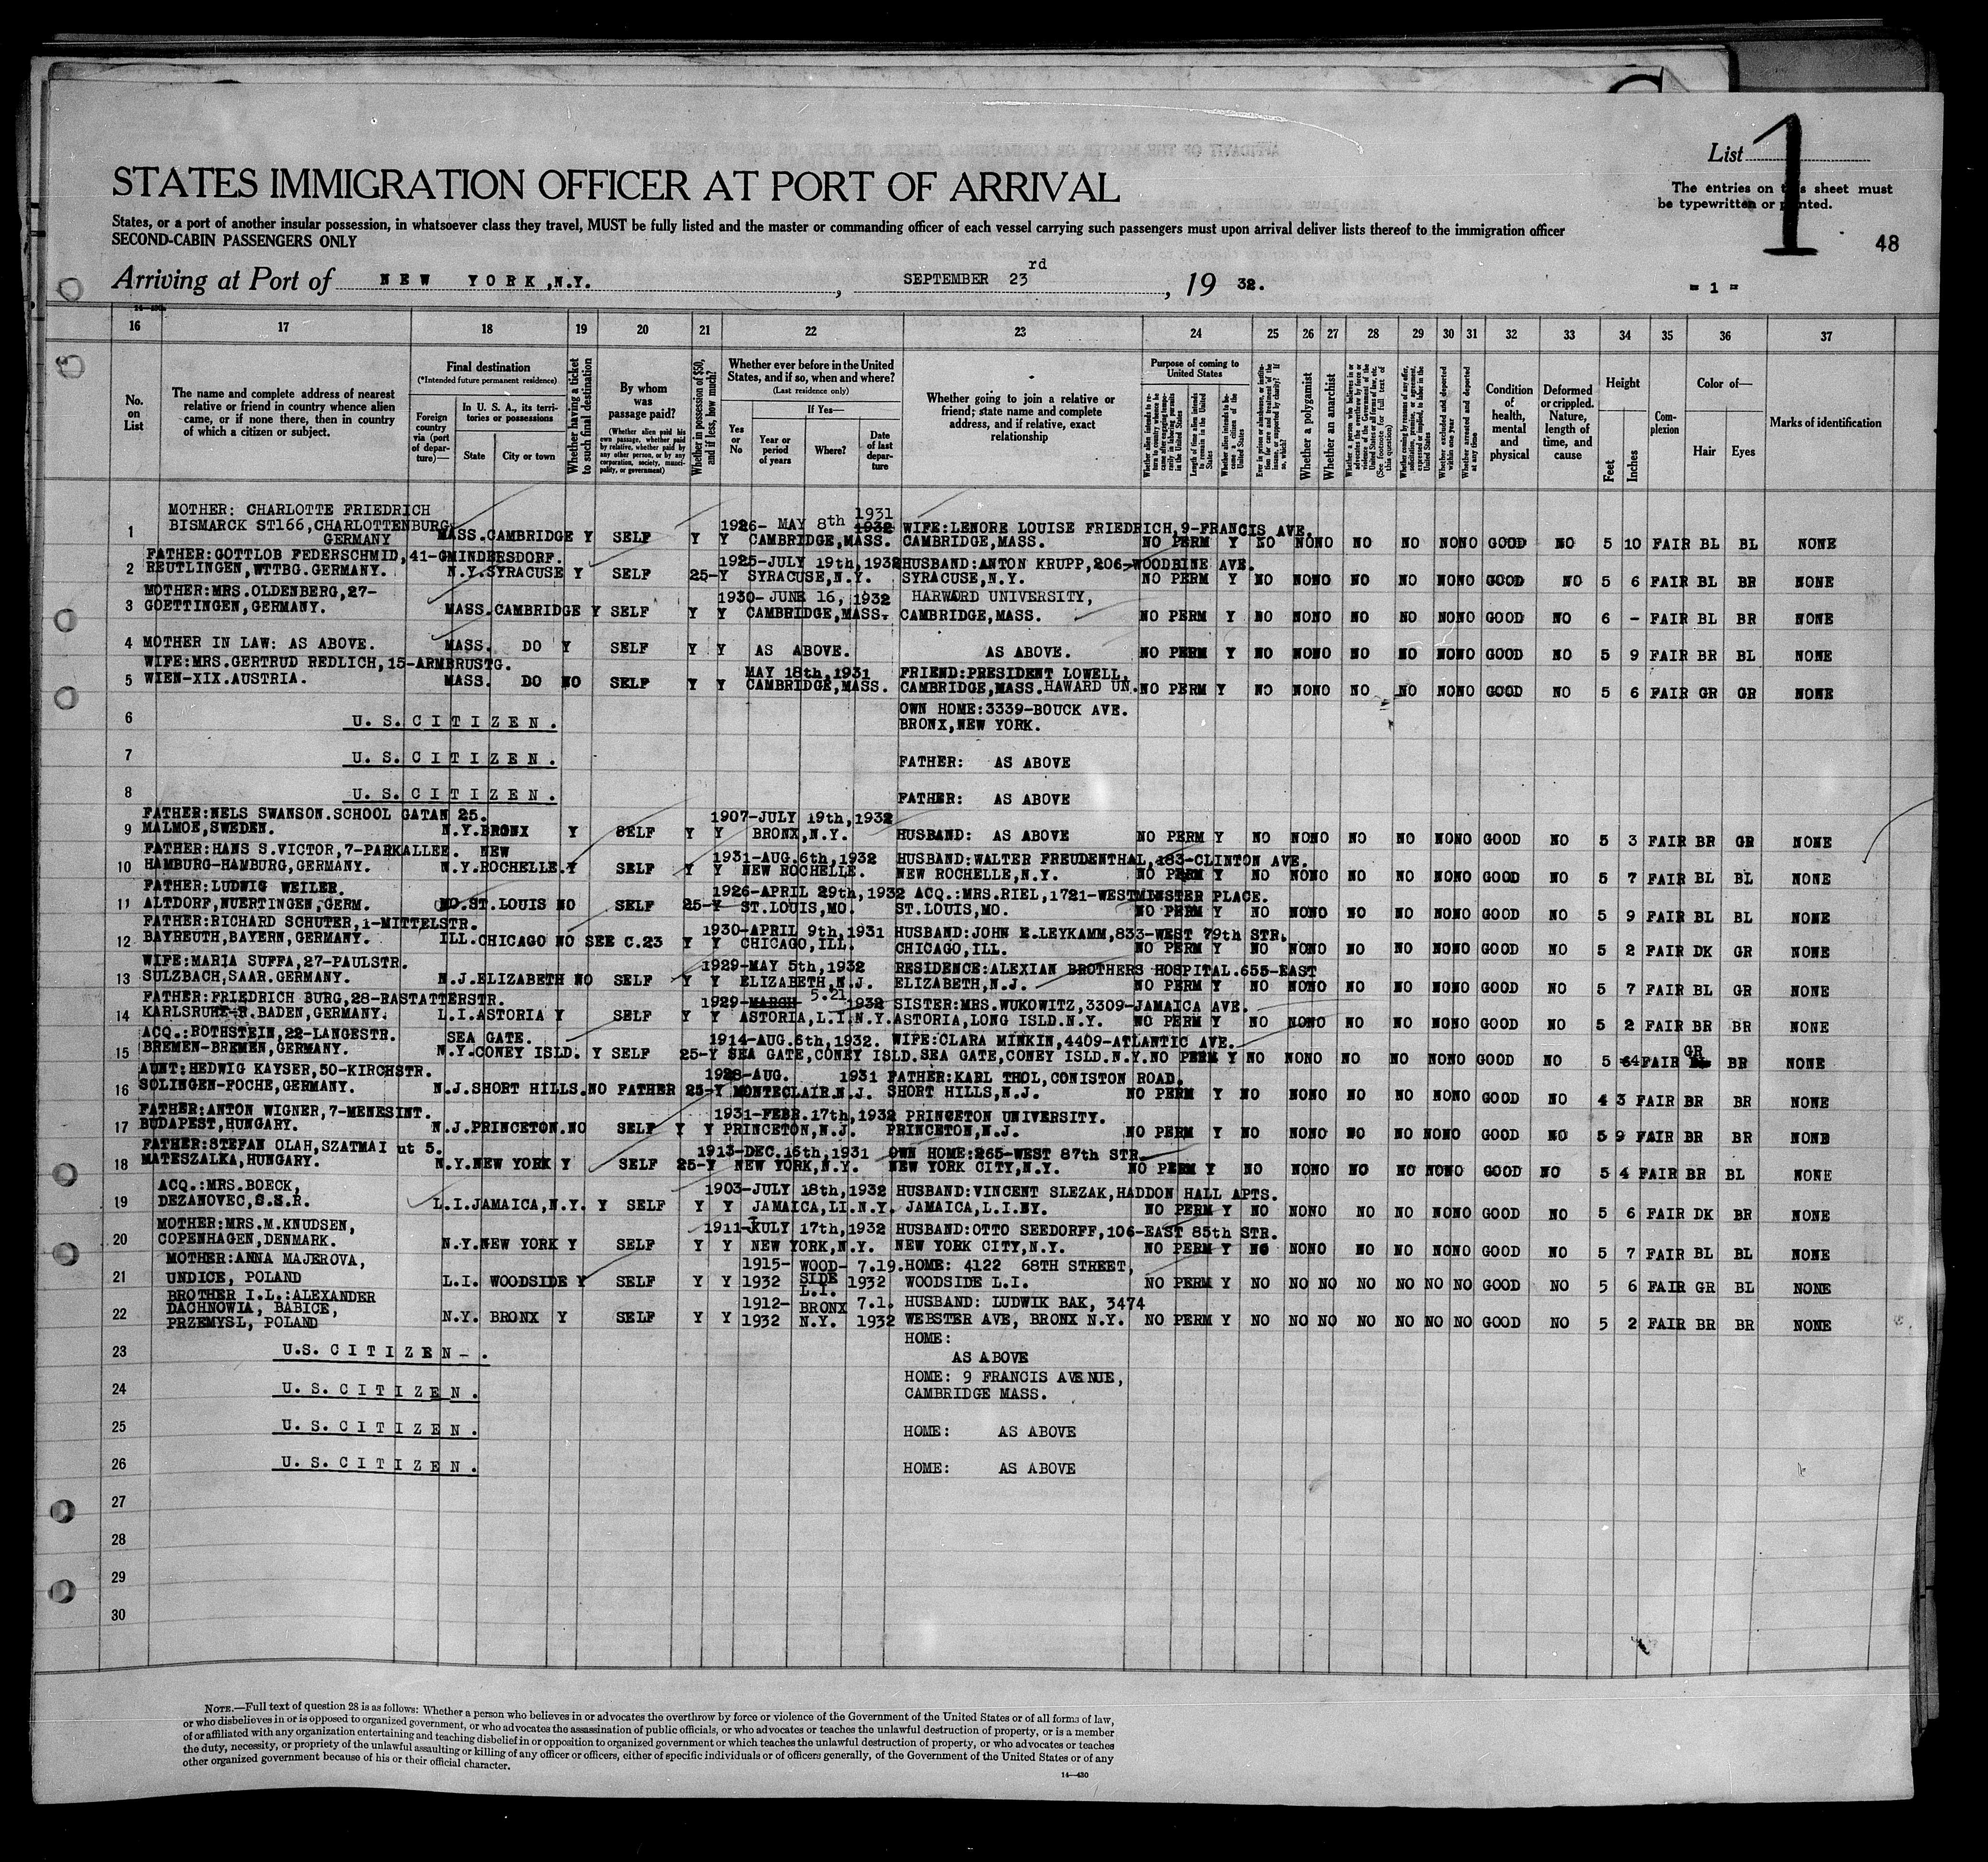 List 1
STATES IMMIGRATION OFFICER AT PORT OF ARRIVAL
The entries on this sheet must
be typewritten or printed.
States, or a port of another insular possession, in whatsoever class they travel, MUST be fully listed and the master or commanding officer of each vessel carrying such passengers must upon arrival deliver lists thereof to the immigration officer
SECOND-CABIN PASSENGERS ONLY
48
Arriving at Port of NEW YORK, N.Y. , SEPTEMBER 23rd , 19 32.
= 1 =
16 17 18 19 20 21 22 23 24 25 26 27 28 29 30 31 32 33 34 35 36 37
No. on List
The name and complete address of nearest relative or friend in country whence alien came, or if none there, then in country of which a citizen or subject.
Final destination
(*Intended future permanent residence)
Foreign country via (port of departure)—
In U. S. A., its territories or possessions
State
City or town
Whether having a ticket to such final destination
By whom was passage paid?
(Whether alien paid his own passage, whether paid by relative, whether paid by any other person, or by any corporation, society, municipality, or government)
Whether in possession of $50, and if less, how much?
Whether ever before in the United States, and if so, when and where?
(Last residence only)
Yes or No
If Yes—
Year or period of years
Where?
Date of last departure
Whether going to join a relative or friend; state name and complete address, and if relative, exact relationship
Purpose of coming to United States
Length of time alien intends to remain in the United States
Whether alien intends to become a citizen of the United States
Whether a polygamist
Whether an anarchist
(See footnote for full text of this question)
Whether excluded and deported within one year
Whether arrested and deported at any time
Condition of health, mental and physical
Deformed or crippled. Nature, length of time, and cause
Height
Feet
Inches
Complexion
Color of—
Hair
Eyes
Marks of identification
MOTHER: CHARLOTTE FRIEDRICH 1931
1 BISMARCK ST166,CHARLOTTENBURG 1926- MAY 8th 1932 WIFE:LENORE LOUISE FRIEDRICH,9-FRANCIS AVE.
GERMANY MASS.CAMBRIDGE Y SELF Y Y CAMBRIDGE,MASS. CAMBRIDGE,MASS. NO PERM Y NO NONO NO NO NONO GOOD NO 5 10 FAIR BL BL NONE
FATHER:GOTTLOB FEDERSCHMID,41-GMINDERSDORF. 1925-JULY 19th,1932 HUSBAND:ANTON KRUPP,206-WOODBINE AVE.
2 REUTLINGEN,WTTBG.GERMANY. N.Y.SYRACUSE Y SELF 25-Y SYRACUSE,N.Y. SYRACUSE,N.Y. NO PERM Y NO NONO NO NO NONO GOOD NO 5 6 FAIR BL BR NONE
MOTHER:MRS.OLDENBERG,27- 1930- JUNE 16, 1932 HARWARD UNIVERSITY,
3 GOETTINGEN,GERMANY. MASS.CAMBRIDGE Y SELF Y Y CAMBRIDGE,MASS. CAMBRIDGE,MASS. NO PERM Y NO NONO NO NO NONO GOOD NO 6 - FAIR BL BR NONE
4 MOTHER IN LAW: AS ABOVE. MASS. DO Y SELF Y Y AS ABOVE. AS ABOVE. NO PERM Y NO NONO NO NO NONO GOOD NO 5 9 FAIR BR BL NONE
WIFE:MRS.GERTRUD REDLICH,15-ARMBRUSTG. MAY 18th,1931 FRIEND:PRESIDENT LOWELL,
5 WIEN-XIX.AUSTRIA. MASS. DO NO SELF Y Y CAMBRIDGE,MASS. CAMBRIDGE,MASS.HAWARD UN. NO PERM Y NO NONO NO NO NONO GOOD NO 5 6 FAIR GR GR NONE
6 U.S.CITIZEN. OWN HOME:3339-BOUCK AVE.
BRONX,NEW YORK.
7 U.S.CITIZEN. FATHER: AS ABOVE
8 U.S.CITIZEN. FATHER: AS ABOVE
FATHER:NELS SWANSON.SCHOOL GATAN 25. 1907-JULY 19th,1932
9 MALMOE,SWEDEN. N.Y.BRONX Y SELF Y Y BRONX,N.Y. HUSBAND: AS ABOVE NO PERM Y NO NONO NO NO NONO GOOD NO 5 3 FAIR BR GR NONE
FATHER:HANS S.VICTOR,7-PARKALLEE. NEW 1931-AUG.6th,1932 HUSBAND:WALTER FREUDENTHAL,183-CLINTON AVE.
10 HAMBURG-HAMBURG,GERMANY. N.Y.ROCHELLE.Y SELF Y Y NEW ROCHELLE. NEW ROCHELLE,N.Y. NO PERM Y NO NONO NO NO NONO GOOD NO 5 7 FAIR BL BL NONE
FATHER:LUDWIG WEILER. 1926-APRIL 29th,1932 ACQ.:MRS.RIEL,1721-WESTMINSTER PLACE.
11 ALTDORF,NUERTINGEN,GERM. MO.ST.LOUIS NO SELF 25-Y ST.LOUIS,MO. ST.LOUIS,MO. NO PERM Y NO NONO NO NO NONO GOOD NO 5 9 FAIR BL BL NONE
FATHER:RICHARD SCHUTER,1-MITTELSTR. 1930-APRIL 9th,1931 HUSBAND:JOHN E.LEYKAMM,833-WEST 79th STR.
12 BAYREUTH,BAYERN,GERMANY. ILL.CHICAGO NO SEE C.23 Y Y CHICAGO,ILL. CHICAGO,ILL. NO PERM Y NO NONO NO NO NONO GOOD NO 5 2 FAIR DK GR NONE
WIFE:MARIA SUFFA,27-PAULSTR. 1929-MAY 5th,1932 RESIDENCE:ALEXIAN BROTHERS HOSPITAL.655-EAST
13 SULZBACH,SAAR.GERMANY. N.J.ELIZABETH NO SELF Y Y ELIZABETH,N.J. ELIZABETH,N.J. NO PERM Y NO NONO NO NO NONO GOOD NO 5 7 FAIR BL GR NONE
FATHER:FRIEDRICH BURG,28-RASTATTERSTR. 1929-MARCH 5.21 1932 SISTER:MRS.WUKOWITZ,3309-JAMAICA AVE.
14 KARLSRUHE-R.BADEN,GERMANY. L.I.ASTORIA Y SELF Y Y ASTORIA,L.I.N.Y. ASTORIA,LONG ISLD.N.Y. NO PERM Y NO NONO NO NO NONO GOOD NO 5 2 FAIR BR BR NONE
ACQ.:ROTHSTEIN,22-LANGESTR. SEA GATE. 1914-AUG.6th,1932. WIFE:CLARA MINKIN,4409-ATLANTIC AVE.
15 BREMEN-BREMEN,GERMANY. N.Y.CONEY ISLD. Y SELF 25-Y SEA GATE,CONEY ISLD. SEA GATE,CONEY ISLD.N.Y. NO PERM Y NO NONO NO NO NONO GOOD NO 5 4 FAIR GR BR NONE
AUNT:HEDWIG KAYSER,50-KIRCHSTR. 1928-AUG. 1931 FATHER:KARL THOL,CONISTON ROAD.
16 SOLINGEN-FOCHE,GERMANY. N.J.SHORT HILLS.NO FATHER 25-Y MONTECLAIR.N.J. SHORT HILLS,N.J. NO PERM Y NO NONO NO NO NONO GOOD NO 4 3 FAIR BR BR NONE
FATHER:ANTON WIGNER,7-MENESINT. 1931-FEBR.17th,1932 PRINCETON UNIVERSITY.
17 BUDAPEST,HUNGARY. N.J.PRINCETON.NO SELF Y Y PRINCETON,N.J. PRINCETON,N.J. NO PERM Y NO NONO NO NO NONO GOOD NO 5 9 FAIR BR BR NONE
FATHER:STEFAN OLAH,SZATMAI ut 5. 1913-DEC.16th,1931 OWN HOME:265-WEST 87th STR.
18 MATESZALKA,HUNGARY. N.Y.NEW YORK Y SELF 25-Y NEW YORK,N.Y. NEW YORK CITY,N.Y. NO PERM Y NO NONO NO NO NONO GOOD NO 5 4 FAIR BR BL NONE
ACQ.:MRS.BOECK, 1903-JULY 18th,1932 HUSBAND:VINCENT SLEZAK,HADDON HALL APTS.
19 DEZANOVEC,S.S.R. L.I.JAMAICA,N.Y. Y SELF Y Y JAMAICA,LI.N.Y. JAMAICA,L.I.NY. NO PERM Y NO NONO NO NO NONO GOOD NO 5 6 FAIR DK BR NONE
MOTHER:MRS.M.KNUDSEN, 1911-JULY 17th,1932 HUSBAND:OTTO SEEDORFF,106-EAST 85th STR.
20 COPENHAGEN,DENMARK. N.Y.NEW YORK Y SELF Y Y NEW YORK,N.Y. NEW YORK CITY,N.Y. NO PERM Y NO NONO NO NO NONO GOOD NO 5 7 FAIR BL BL NONE
MOTHER:ANNA MAJEROVA, 1915- WOOD- 7.19. HOME: 4122 68TH STREET,
21 UNDICE, POLAND L.I. WOODSIDE Y SELF Y Y 1932 SIDE L.I. 1932 WOODSIDE L.I. NO PERM Y NO NO NO NO NO NO NO GOOD NO 5 6 FAIR GR BL NONE
BROTHER I.L.:ALEXANDER 1912- BRONX 7.1. HUSBAND: LUDWIK BAK, 3474
22 DACHNOWIA, BABICE,
PRZEMYSL, POLAND N.Y. BRONX Y SELF Y Y 1932 N.Y. 1932 WEBSTER AVE, BRONX N.Y. NO PERM Y NO NO NO NO NO NO NO GOOD NO 5 2 FAIR BR BR NONE
23 U.S.CITIZEN-. HOME:
AS ABOVE
24 U.S.CITIZEN. HOME: 9 FRANCIS AVENUE,
CAMBRIDGE MASS.
25 U.S.CITIZEN. HOME: AS ABOVE
26 U.S.CITIZEN. HOME: AS ABOVE
27
28
29
30
NOTE.—Full text of question 28 is as follows: Whether a person who believes in or advocates the overthrow by force or violence of the Government of the United States or of all forms of law,
or who disbelieves in or is opposed to organized government, or who advocates the assassination of public officials, or who advocates or teaches the unlawful destruction of property, or is a member
of or affiliated with any organization entertaining and teaching disbelief in or opposition to organized government or which teaches the unlawful destruction of property, or who advocates or teaches
the duty, necessity, or propriety of the unlawful assaulting or killing of any officer or officers, either of specific individuals or of officers generally, of the Government of the United States or of any
other organized government because of his or their official character.
14—430